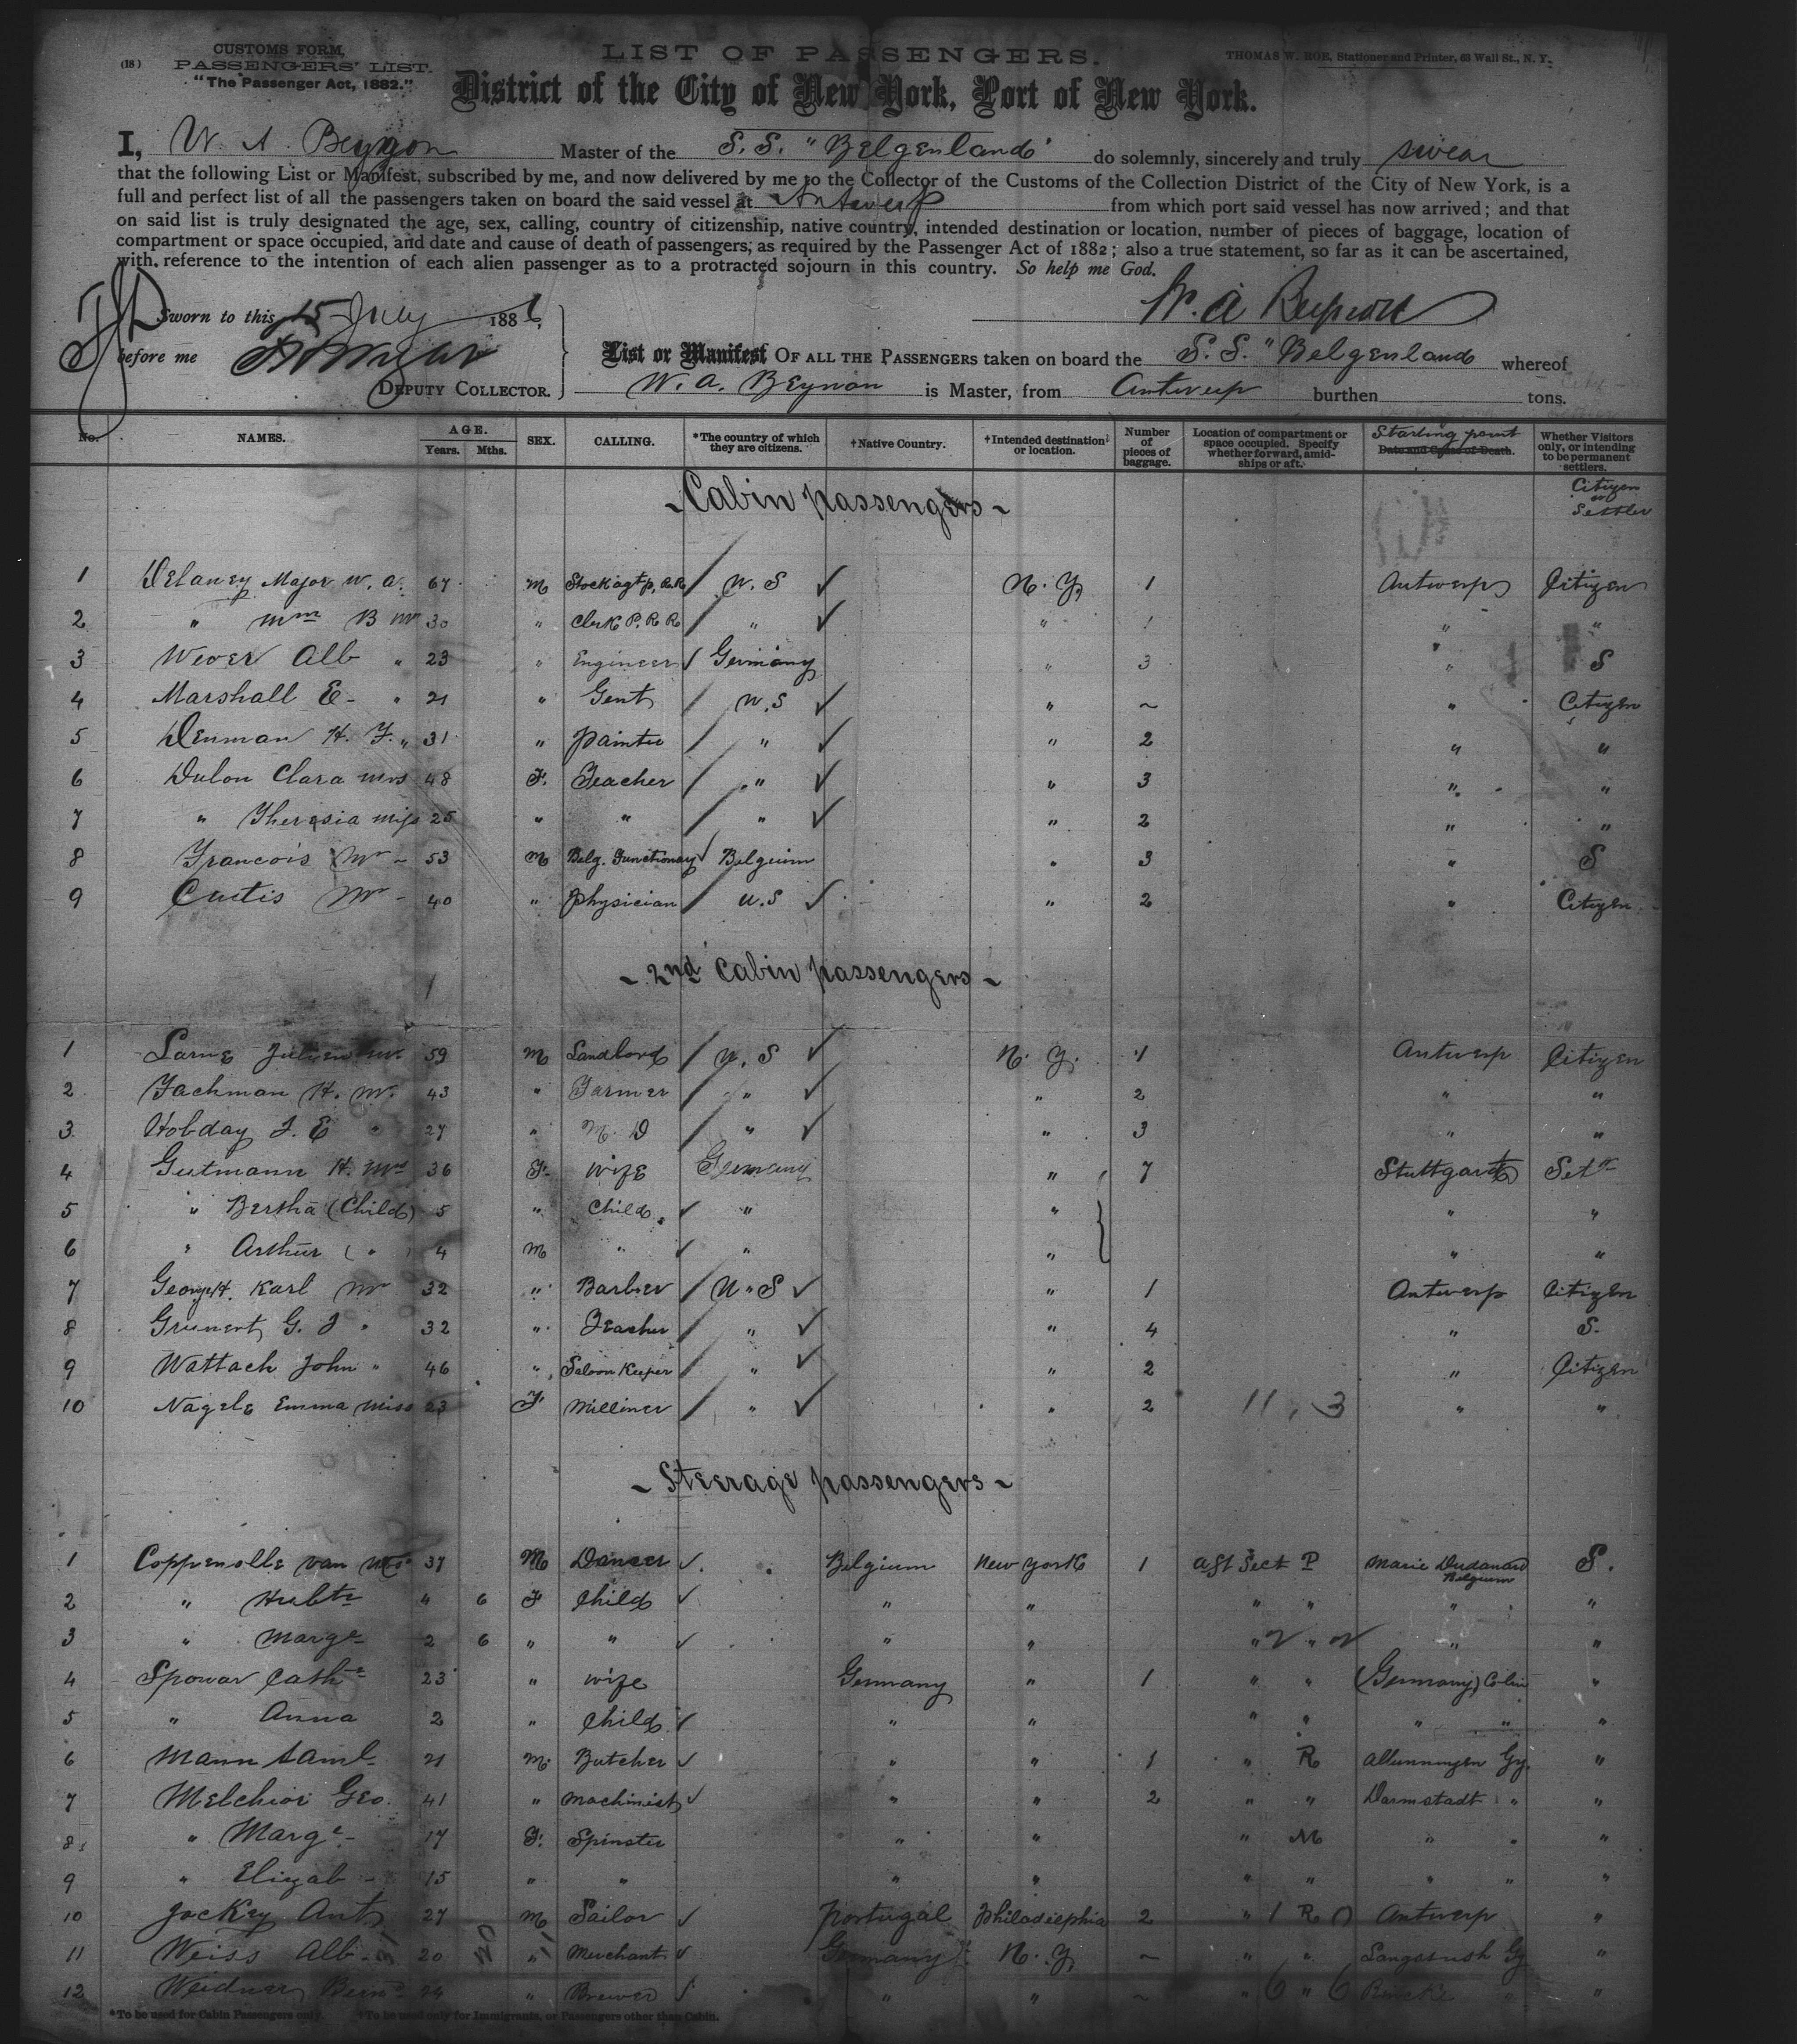 (18)
CUSTOMS FORM,
PASSENGERS' LIST.
"The Passenger Act, 1882."
LIST OF PASSENGERS.
THOMAS W. ROE, Stationer and Printer, 63 Wall St., N. Y.
District of the City of New York, Port of New York.
I, W. A. Beynon Master of the S. S. "Belgenland" do solemnly, sincerely and truly swear
that the following List or Manifest, subscribed by me, and now delivered by me to the Collector of the Customs of the Collection District of the City of New York, is a
full and perfect list of all the passengers taken on board the said vessel at Antwerp from which port said vessel has now arrived; and that
on said list is truly designated the age, sex, calling, country of citizenship, native country, intended destination or location, number of pieces of baggage, location of
compartment or space occupied, and date and cause of death of passengers, as required by the Passenger Act of 1882; also a true statement, so far as it can be ascertained,
with reference to the intention of each alien passenger as to a protracted sojourn in this country. So help me God.
W. A. Beynon
Sworn to this 15 July 188
before me
DEPUTY COLLECTOR.
List or Manifest OF ALL THE PASSENGERS taken on board the S. S. "Belgenland whereof
W. A. Beynon is Master, from Antwerp burthen tons.
No. NAMES. AGE. Years. Mths. SEX. CALLING. *The country of which they are citizens. †Native Country. †Intended destination or location. Number of pieces of baggage. Location of compartment or space occupied. Specify whether forward, amidships or aft. Starting point Date and Cause of Death. Whether Visitors only, or intending to be permanent settlers.
Citizen or Settler
- Cabin passengers -
1 Delaney Major W. A. 67 M Stock agt P. R.R U. S N. Y. 1 Antwerp Citizen
2 " B Mr 30 " Clerk P. R R " " 1 " "
3 Wever Alb " 23 " Engineer Germany " 3 " S
4 Marshall E - " 21 " Gent U. S " ~ " Citizen
5 Denman H. F. " 31 " painter " " 2 " "
6 Dulon Clara Mrs 48 F. Teacher " " 3 " "
7 " Theresia Miss 25 " " " " 2 " "
8 Francois Mr - 53 M Belg. Functionary Belgium " 3 " S
9 Curtis Mr - 40 " physician U. S " 2 " Citizen
- 2nd Cabin passengers -
1 Larne Julien Mr. 59 M Landlord U. S N. Y. 1 Antwerp Citizen
2 Fachman H. Mr. 43 " Farmer " " 2 " "
3 Hobday J. E " 27 " M. D " " 3 " "
4 Gutmann H. Mrs 36 F. wife Germany " 7 Stuttgart Setr
5 " Bertha (Child) 5 " Child " " " "
6 " Arthur ( " ) 4 M " " " " "
7 George H. Karl Mr 32 " Barber U. S " 1 Antwerp Citizen
8 Grunert G. J " 32 " Teacher " " 4 " S.
9 Wattach John " 46 " Saloon Keeper " " 2 " Citizen
10 Nagele Emma Miss 23 F Milliner " " 2 11, 3 " "
- Steerage passengers -
1 Coppenolle van 37 M Dancer Belgium New York 1 aft Sect P Marie Belgium S.
2 " Hubte 4 6 F Child " " " " " "
3 " Marge 2 6 " " " " " " " "
4 Spowar Cathe 23 " wife Germany " 1 " " (Germany) "
5 " Anna 2 " Child " " " " " " "
6 Mann Saml 21 M. Butcher " " 1 " R Gy. "
7 Melchior Geo. 41 " Machinist " " 2 " " Darmstadt " "
8 " Marge 17 F. Spinster " " " M " " "
9 " Elizab - 15 " " " " " " " " "
10 Jockey Ant 27 M Sailor Portugal Philadelphia 2 " R Antwerp "
11 Weiss Alb - 20 " Merchant Germany N. Y. ~ " " Gy "
12 Weidner 24 " Brewer " " ~ " " " "
*To be used for Cabin Passengers only. †To be used only for Immigrants, or Passengers other than Cabin.